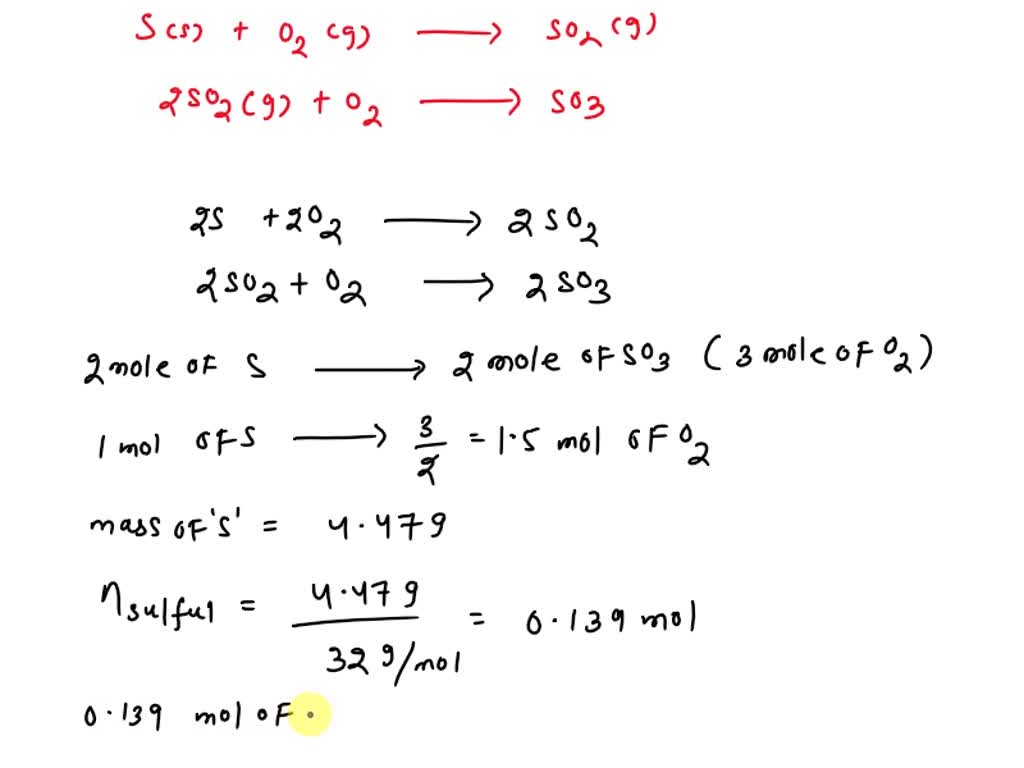 S(s) + O2 (g) ⟶ SO2 (g)
2SO2 (g) + O2 ⟶ SO3
2S + 2O2 ⟶ 2SO2
2SO2 + O2 ⟶ 2SO3
2 mole of S ⟶ 2 mole of SO3 (3 mole of O2)
1 mol of S ⟶ 3/2 = 1.5 mol of O2
mass of 'S' = 4.47g
nsulful = 4.47g / 32 g/mol = 0.139 mol
0.139 mol of